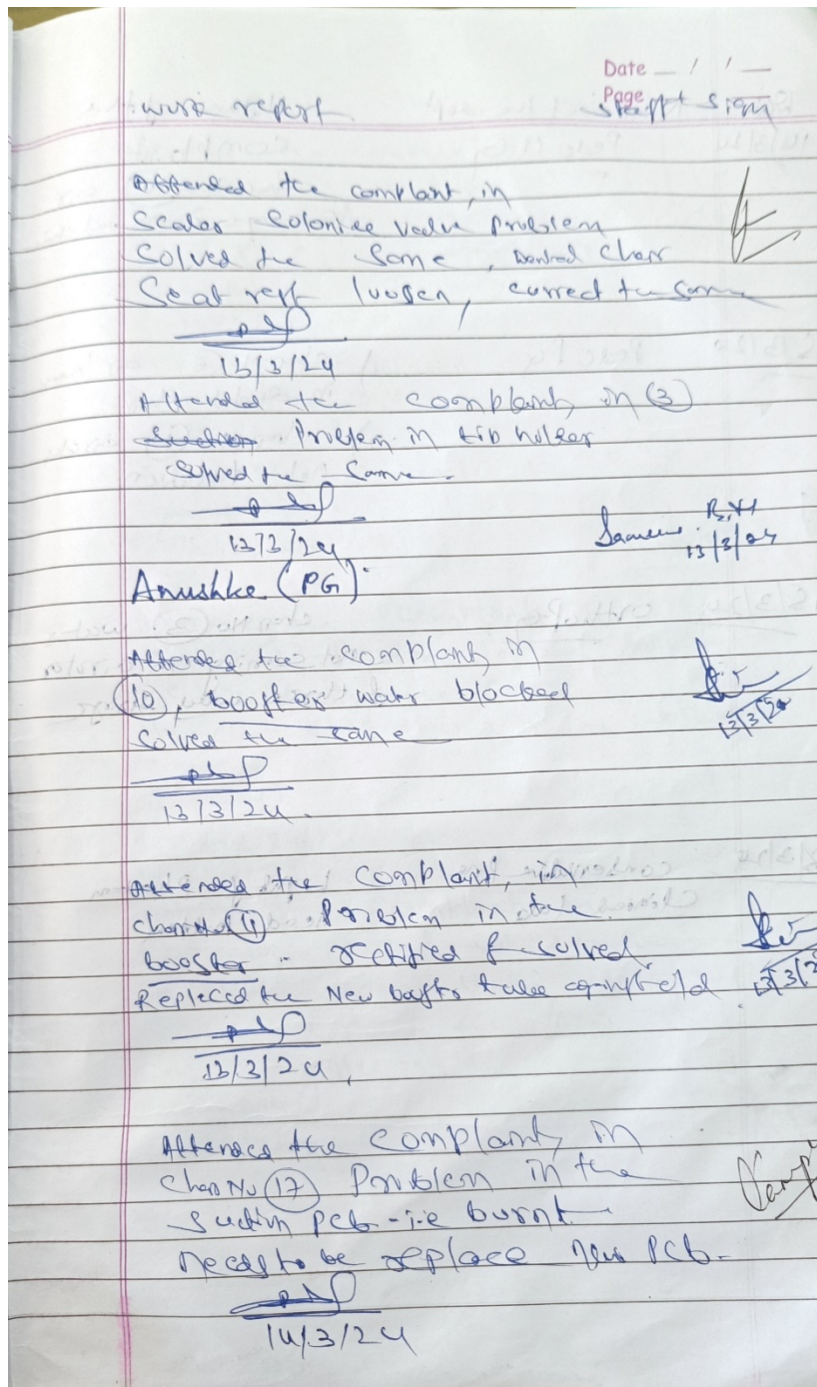 Date
Page
work report staff sign
Attended the complant, in
Scaler Soloniee valve problem
Solved the Same, Dental Chair
Seat rest loosen, currect the same
13/3/24
Attended the complant, in (3)
Problem in tip holder
Solved the Same.
13/3/24
13/3/24
Anushka (PG)
Attended the complant, in
(10), booster water blocked
Solved the same
13/3/24
13/3/24.
Attended the complant, in
chair No Problem in the
booster - rectified & solved
Replaced the New tube
13/3/24
Attended the complant, in
Chair No (17) Problem in the
Suction PCB - i.e burnt
needs to be replace New PCB-
14/3/24